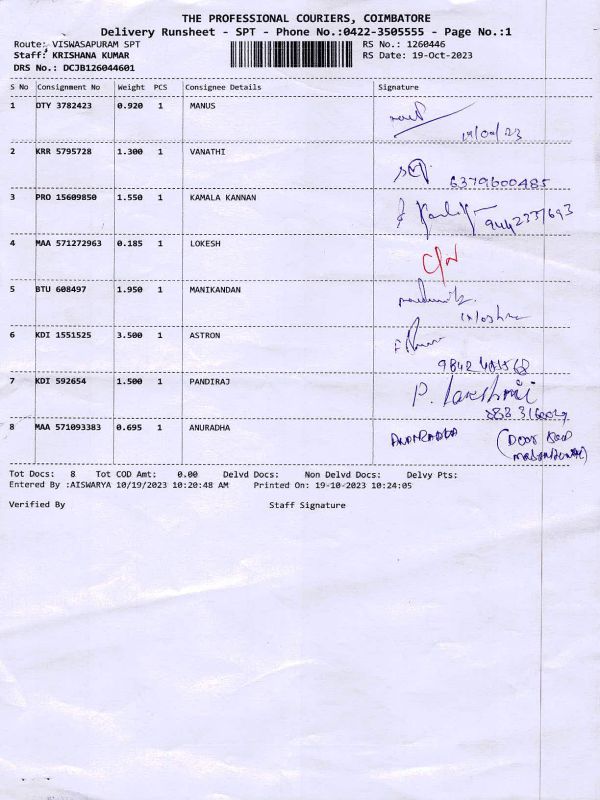 THE PROFESSIONAL COURIERS, COIMBATORE
Delivery Runsheet - SPT - Phone No.:0422-3505555 - Page No.:1
Route: VISWASAPURAM SPT RS No.: 1260446
Staff: KRISHANA KUMAR RS Date: 19-Oct-2023
DRS No.: DCJB126044601
S No Consignment No Weight PCS Consignee Details Signature
1 DTY 3782423 0.920 1 MANUS
2 KRR 5795728 1.300 1 VANATHI
6379600485
3 PRO 15609850 1.550 1 KAMALA KANNAN
4 MAA 571272963 0.185 1 LOKESH
C/N
5 BTU 608497 1.950 1 MANIKANDAN
6 KDI 1551525 3.500 1 ASTRON
7 KDI 592654 1.500 1 PANDIRAJ
P. Lakshmi
8 MAA 571093383 0.695 1 ANURADHA
ANURADHA
Tot Docs: 8 Tot COD Amt: 0.00 Delvd Docs: Non Delvd Docs: Delvy Pts:
Entered By :AISWARYA 10/19/2023 10:20:48 AM Printed On: 19-10-2023 10:24:05
Verified By Staff Signature